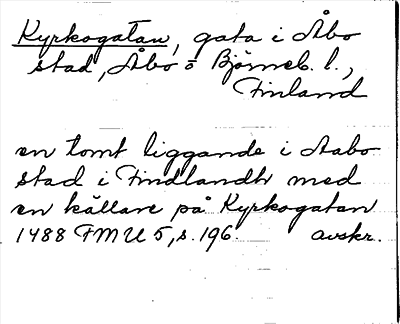 Kyrkogatan, gata i Åbo
stad, Åbo o Björneb. l.,
Finland
en tomt liggande i Aabo
stad i Findlandh med
en källare på Kyrkogatan
1488 FMU 5, s. 196. avskr.